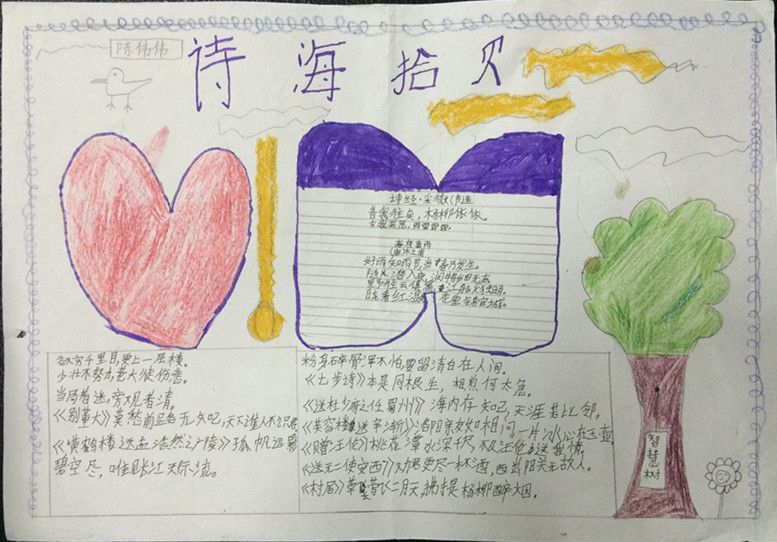 陈伟伟
诗海拾贝
诗经·采薇(节选
昔我往矣，杨柳依依。
今我来思，雨雪霏霏。
春夜喜雨
好雨知时节，当春乃发生。
随风潜入夜，润物细无声。
野径云俱黑，江船火独明。
晓看红湿处，花重锦官城。
欲穷千里目，更上一层楼。
少壮不努力，老大徒伤悲。
当局者迷，旁观者清。
《别董大》莫愁前路无知己，天下谁人不识君
《黄鹤楼送孟浩然之广陵》孤帆远影
碧空尽，唯见长江天际流。
粉身碎骨浑不怕，要留清白在人间。
《七步诗》本是同根生，相煎何太急。
《送杜少府之任蜀州》海内存知己，天涯若比邻。
《芙蓉楼送辛渐》洛阳亲友如相问一片冰心在玉壶
《赠汪伦》桃花潭水深千尺，不及汪伦送我情。
《送元二使安西》劝君更尽一杯酒，西出阳关无故人。
《村居》草长莺飞二月天，拂堤杨柳醉春烟。
智慧树